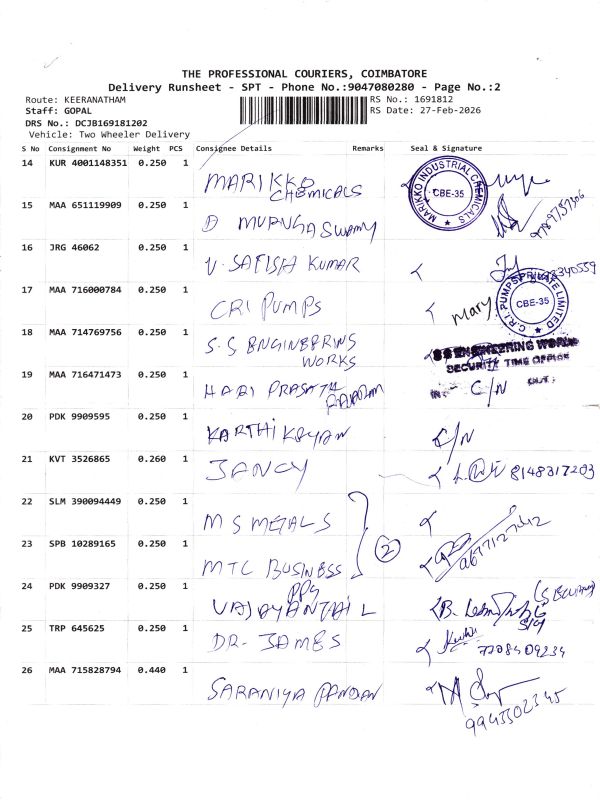 THE PROFESSIONAL COURIERS, COIMBATORE
Delivery Runsheet - SPT - Phone No.:9047080280 - Page No.:2
Route: KEERANATHAM RS No.: 1691812
Staff: GOPAL RS Date: 27-Feb-2026
DRS No.: DCJB169181202
Vehicle: Two Wheeler Delivery
S No Consignment No Weight PCS Consignee Details Remarks Seal & Signature
14 KUR 4001148351 0.250 1 MARIKKO CHEMICALS MARIKKO INDUSTRIAL CHEMICALS CBE-35
15 MAA 651119909 0.250 1 D MURUGASWAMY
16 JRG 46062 0.250 1 V. SATISH KUMAR
17 MAA 716000784 0.250 1 CRI PUMPS Mary C.R.I. PUMPS PRIVATE LIMITED CBE-35
18 MAA 714769756 0.250 1 S.S ENGINEERING WORKS SS ENGINEERING WORKS SECURITY TIME OFFICE
IN: OUT:
19 MAA 716471473 0.250 1 HARI PRASATH C/N
20 PDK 9909595 0.250 1 KARTHIKEYAN C/N
21 KVT 3526865 0.260 1 JANCY 8148317203
22 SLM 390094449 0.250 1 M S METALS
2
23 SPB 10289165 0.250 1 MTC BUSINESS PPG
24 PDK 9909327 0.250 1 VAIJAYANTHI L B.
25 TRP 645625 0.250 1 DR. JAMES 7708409234
26 MAA 715828794 0.440 1 SARANIYA PANDIAN 9943502345